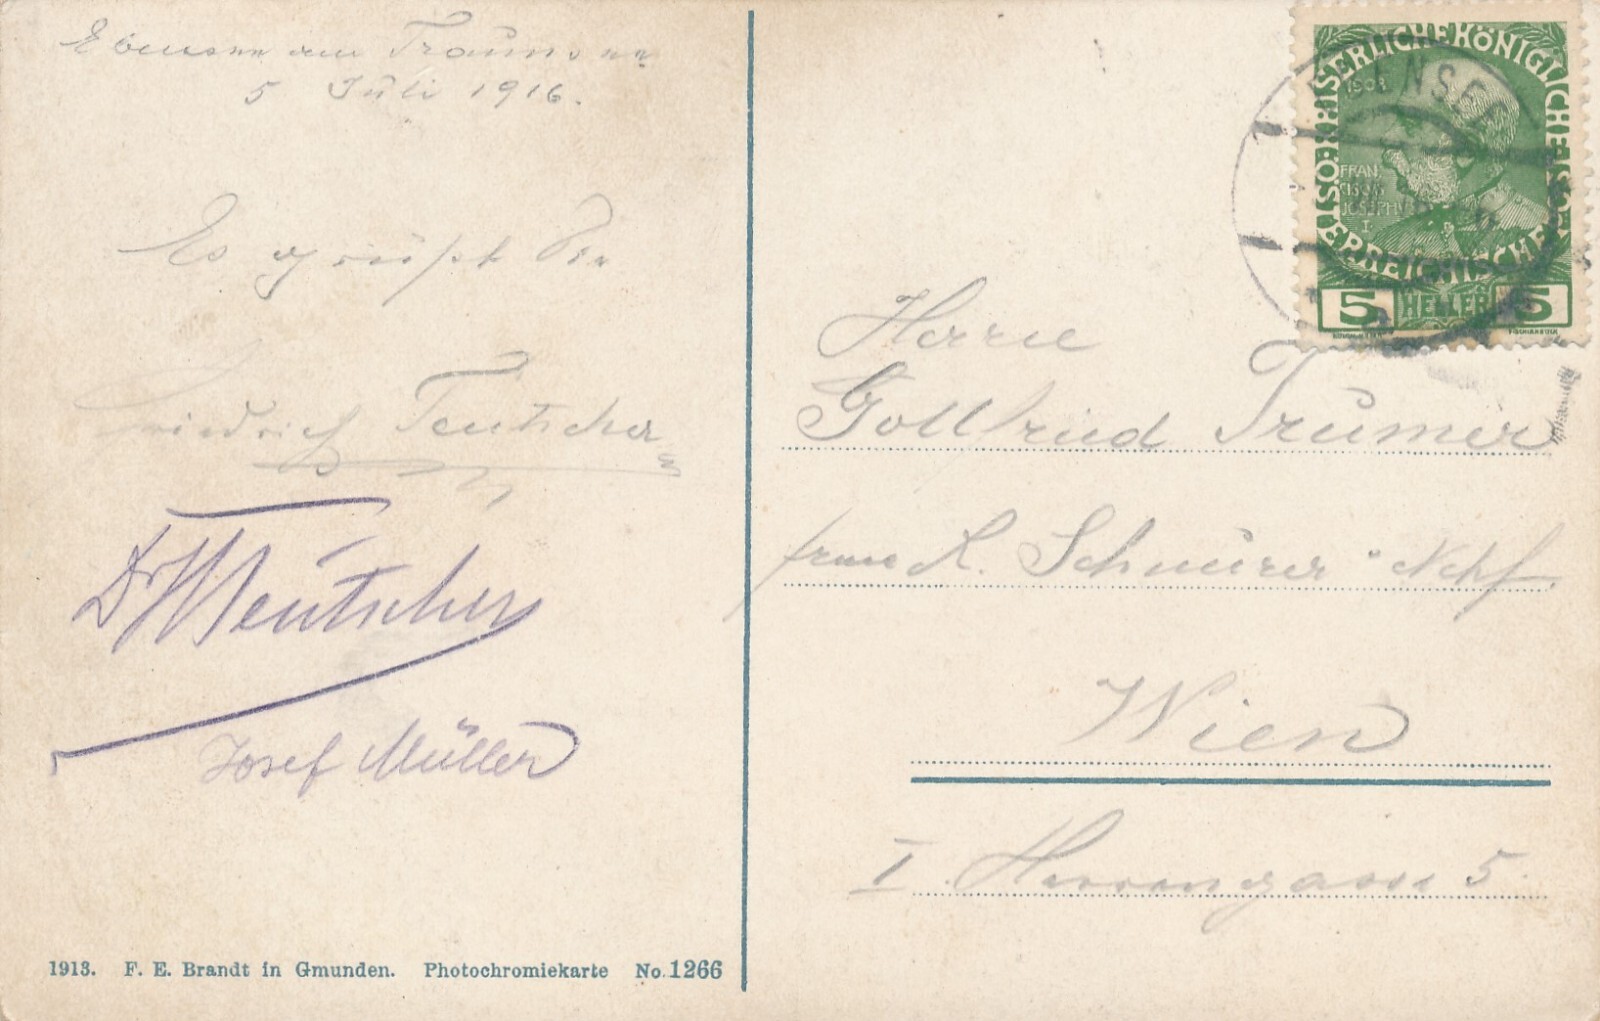 Ebensee am Traunsee
5 Juli 1916.
Es grüßt Sie
Friedrich Teutscher
Dr Teutscher
Josef Müller
1913. F. E. Brandt in Gmunden. Photochromiekarte No. 1266
KAISERLICHE KÖNIGLICHE
ÖSTERREICHISCHE
1908
FRAN
CISCVS
JOSEPHVS
I
5 HELLER 5
Herrn
Gottfried Trumer
K. Schnürer Nchf.
Wien
I. Herrengasse 5.